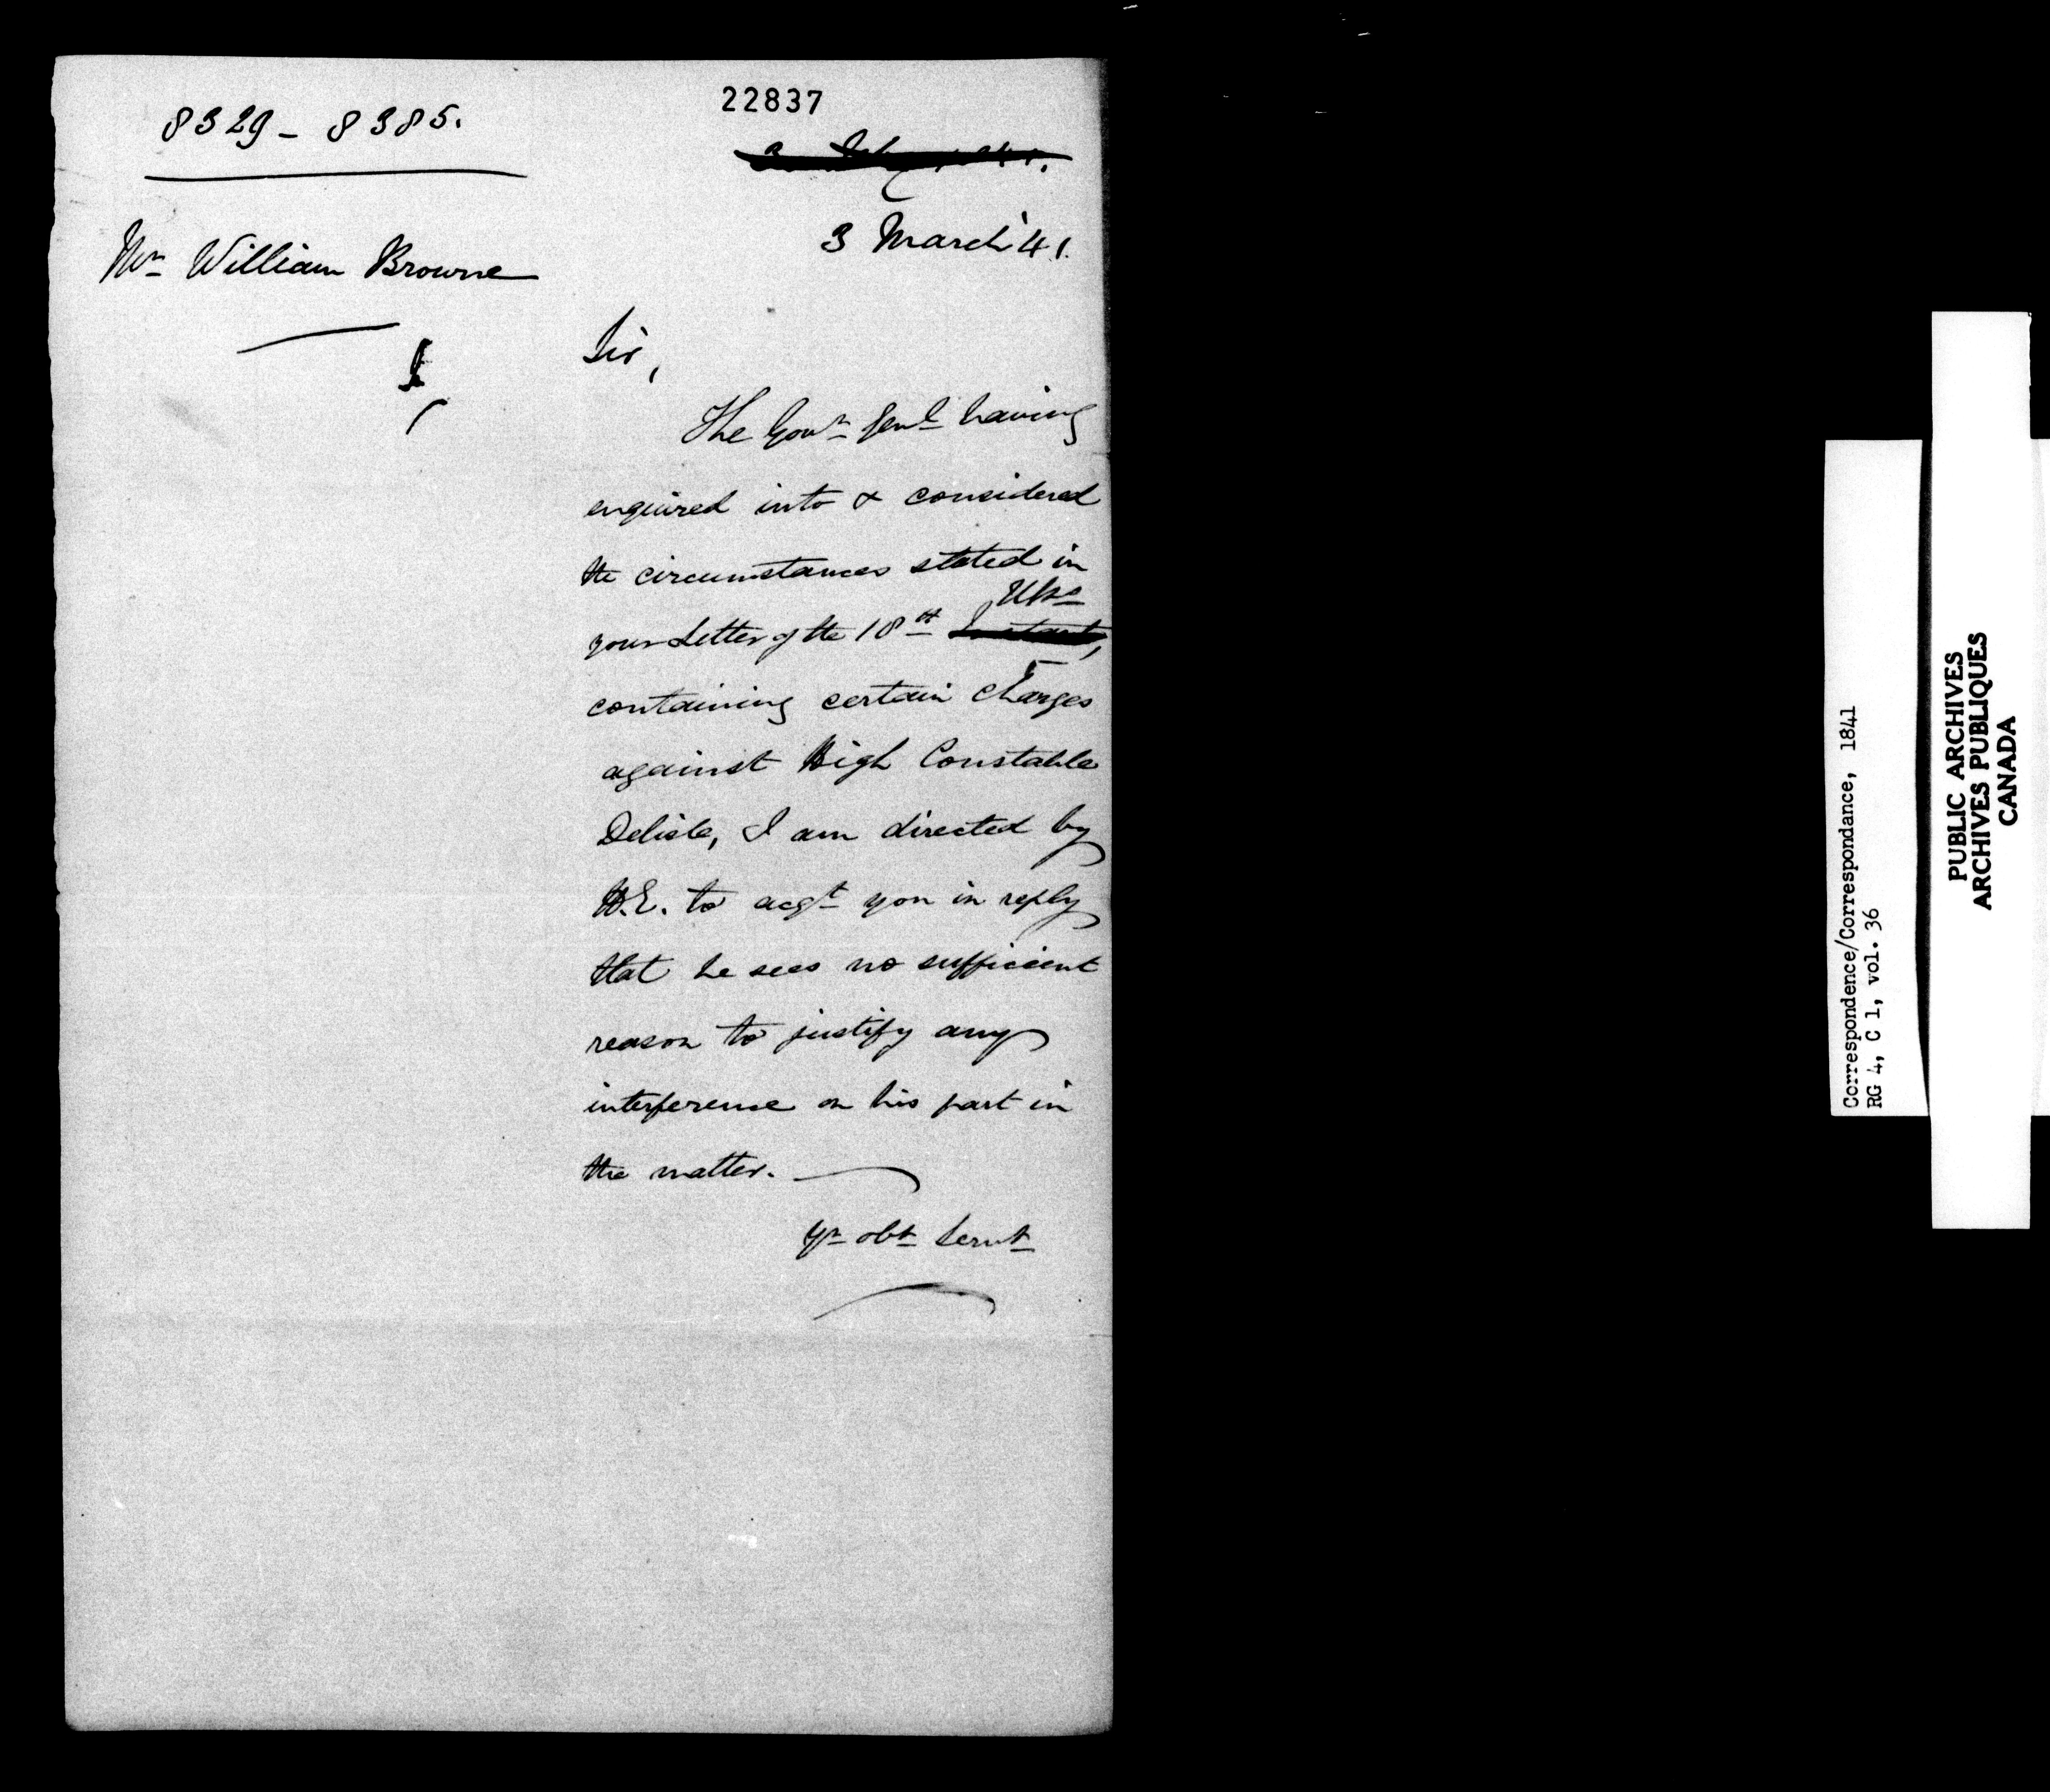 22837
8329 - 8385.
3 March '41.
Mr William Browne
Sir,
The Govr Genl having
enquired into & considered
the circumstances stated in
your Letter of the 18th Instant, Ulto
containing certain charges
against High Constable
Delisle, I am directed by
H.E. to acqt you in reply
that he sees no sufficient
reason to justify any
interference on his part in
the matter.
Yr obt Servt
Correspondence/Correspondance, 1841
RG 4, C 1, vol. 36
PUBLIC ARCHIVES
ARCHIVES PUBLIQUES
CANADA